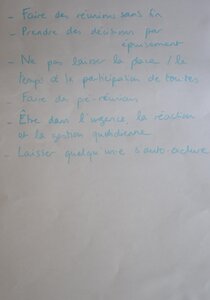 - Faire des réunions sans fin
- Prendre des décisions par
épuisement
- Ne pas laisser la place / le
temps à la participation de toutes
- Faire du pré-réunion
- Être dans l'urgence, la réaction
et la gestion quotidienne
- Laisser quelqu'un·e s'auto-exclure